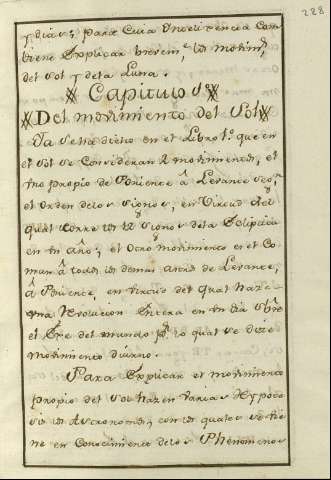 228
y dias; para cuia Inteligencia com
biene Explicar brevem.te los movim.tos
del Sol y dela Luna.
Capitulo 5º
Del movimiento del Sol
Ya Se ha dicho en el Libro 1.º que en
el Sol se Consideran 2 movimientos, el
Uno propio de Poniente â Levante seg.n
el Orden delos Signos, en Virtud del
qual Corre los 12 Signos dela Ecliptica
en Un año; el otro movimiento es el Co
mun â todos los demas Astros de Levante,
â Poniente, en virtud del qual haze
Una Revolucion Entera en Un dia sobre
el Exe del mundo por lo qual se dize
movimiento diurno.
Para Explicar el movimiento
propio del Sol hazen varias Hypote
los Astronomos; con los quales se
ne en Conocimiento delos Phenomenos